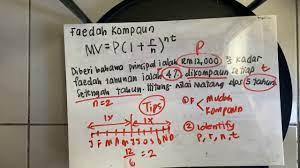 Faedah Kompaun
MV = P(1 + r/n)^nt
P
Diberi bahawa prinsipal ialah RM12,000 & kadar
faedah tahunan ialah 4% dikompaun setiap t
setengah tahun. Hitung nilai matang dps 5 tahun.
n=2
Tips
① F = Mudah
Kompaun
1X 1X
J F M A M J J O S O N D
② Identify
P, r, n, t
12/6 = 2